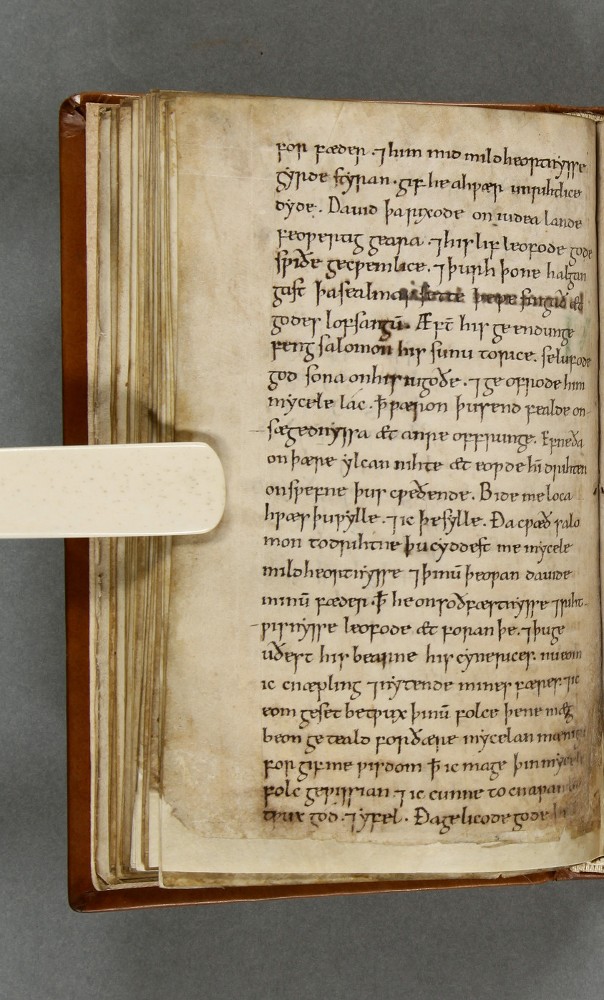 for fæder. ⁊ him mid mildheortnysse
gyrde styran. gif he ahƿær unrihtlice
dyde. Dauid þa rixode on iudea lande
feoƿertig geara. ⁊ his lif leofode gode
sƿiðe gecƿemlice. ⁊ þurh þone halgan
gast þa sealmas
godes lofsangū. Æft̄ his geendunge
feng salomon his sunu to rice. se lufode
god sona on his iugoðe. ⁊ geoffrode him
mycele lac. ꝥ ƿæron þusend fealde on-
sægednyssa æt anre offrunge. Efne ða
on þære ylcan nihte æt eoƿde hī drihten
on sƿefne þus cƿeðende. Bide me loca
hƿæs þu ƿylle. ⁊ ic þe sylle. Ða cƿæð salo
mon to drihtne þu cyddest me mycele
mildheortnysse ⁊ þinū þeoƿan dauide
minū fæder. ꝥ he on soðfæstnysse ⁊ riht-
ƿisnysse leofode æt foran þe. ⁊ þu ge
uðest his bearne his cynerices. nu eom
ic cnæpling ⁊ nytende mines færes. ⁊ ic
eom geset betƿux þinū folce þe ne mæg
beon geteald for ðære mycelan
forgif me ƿisdom ꝥ ic mage þin mycele
folc geƿissian ⁊ ic cunne tocnaƿan
tƿux god. ⁊ yfel. Ða gelicode gode